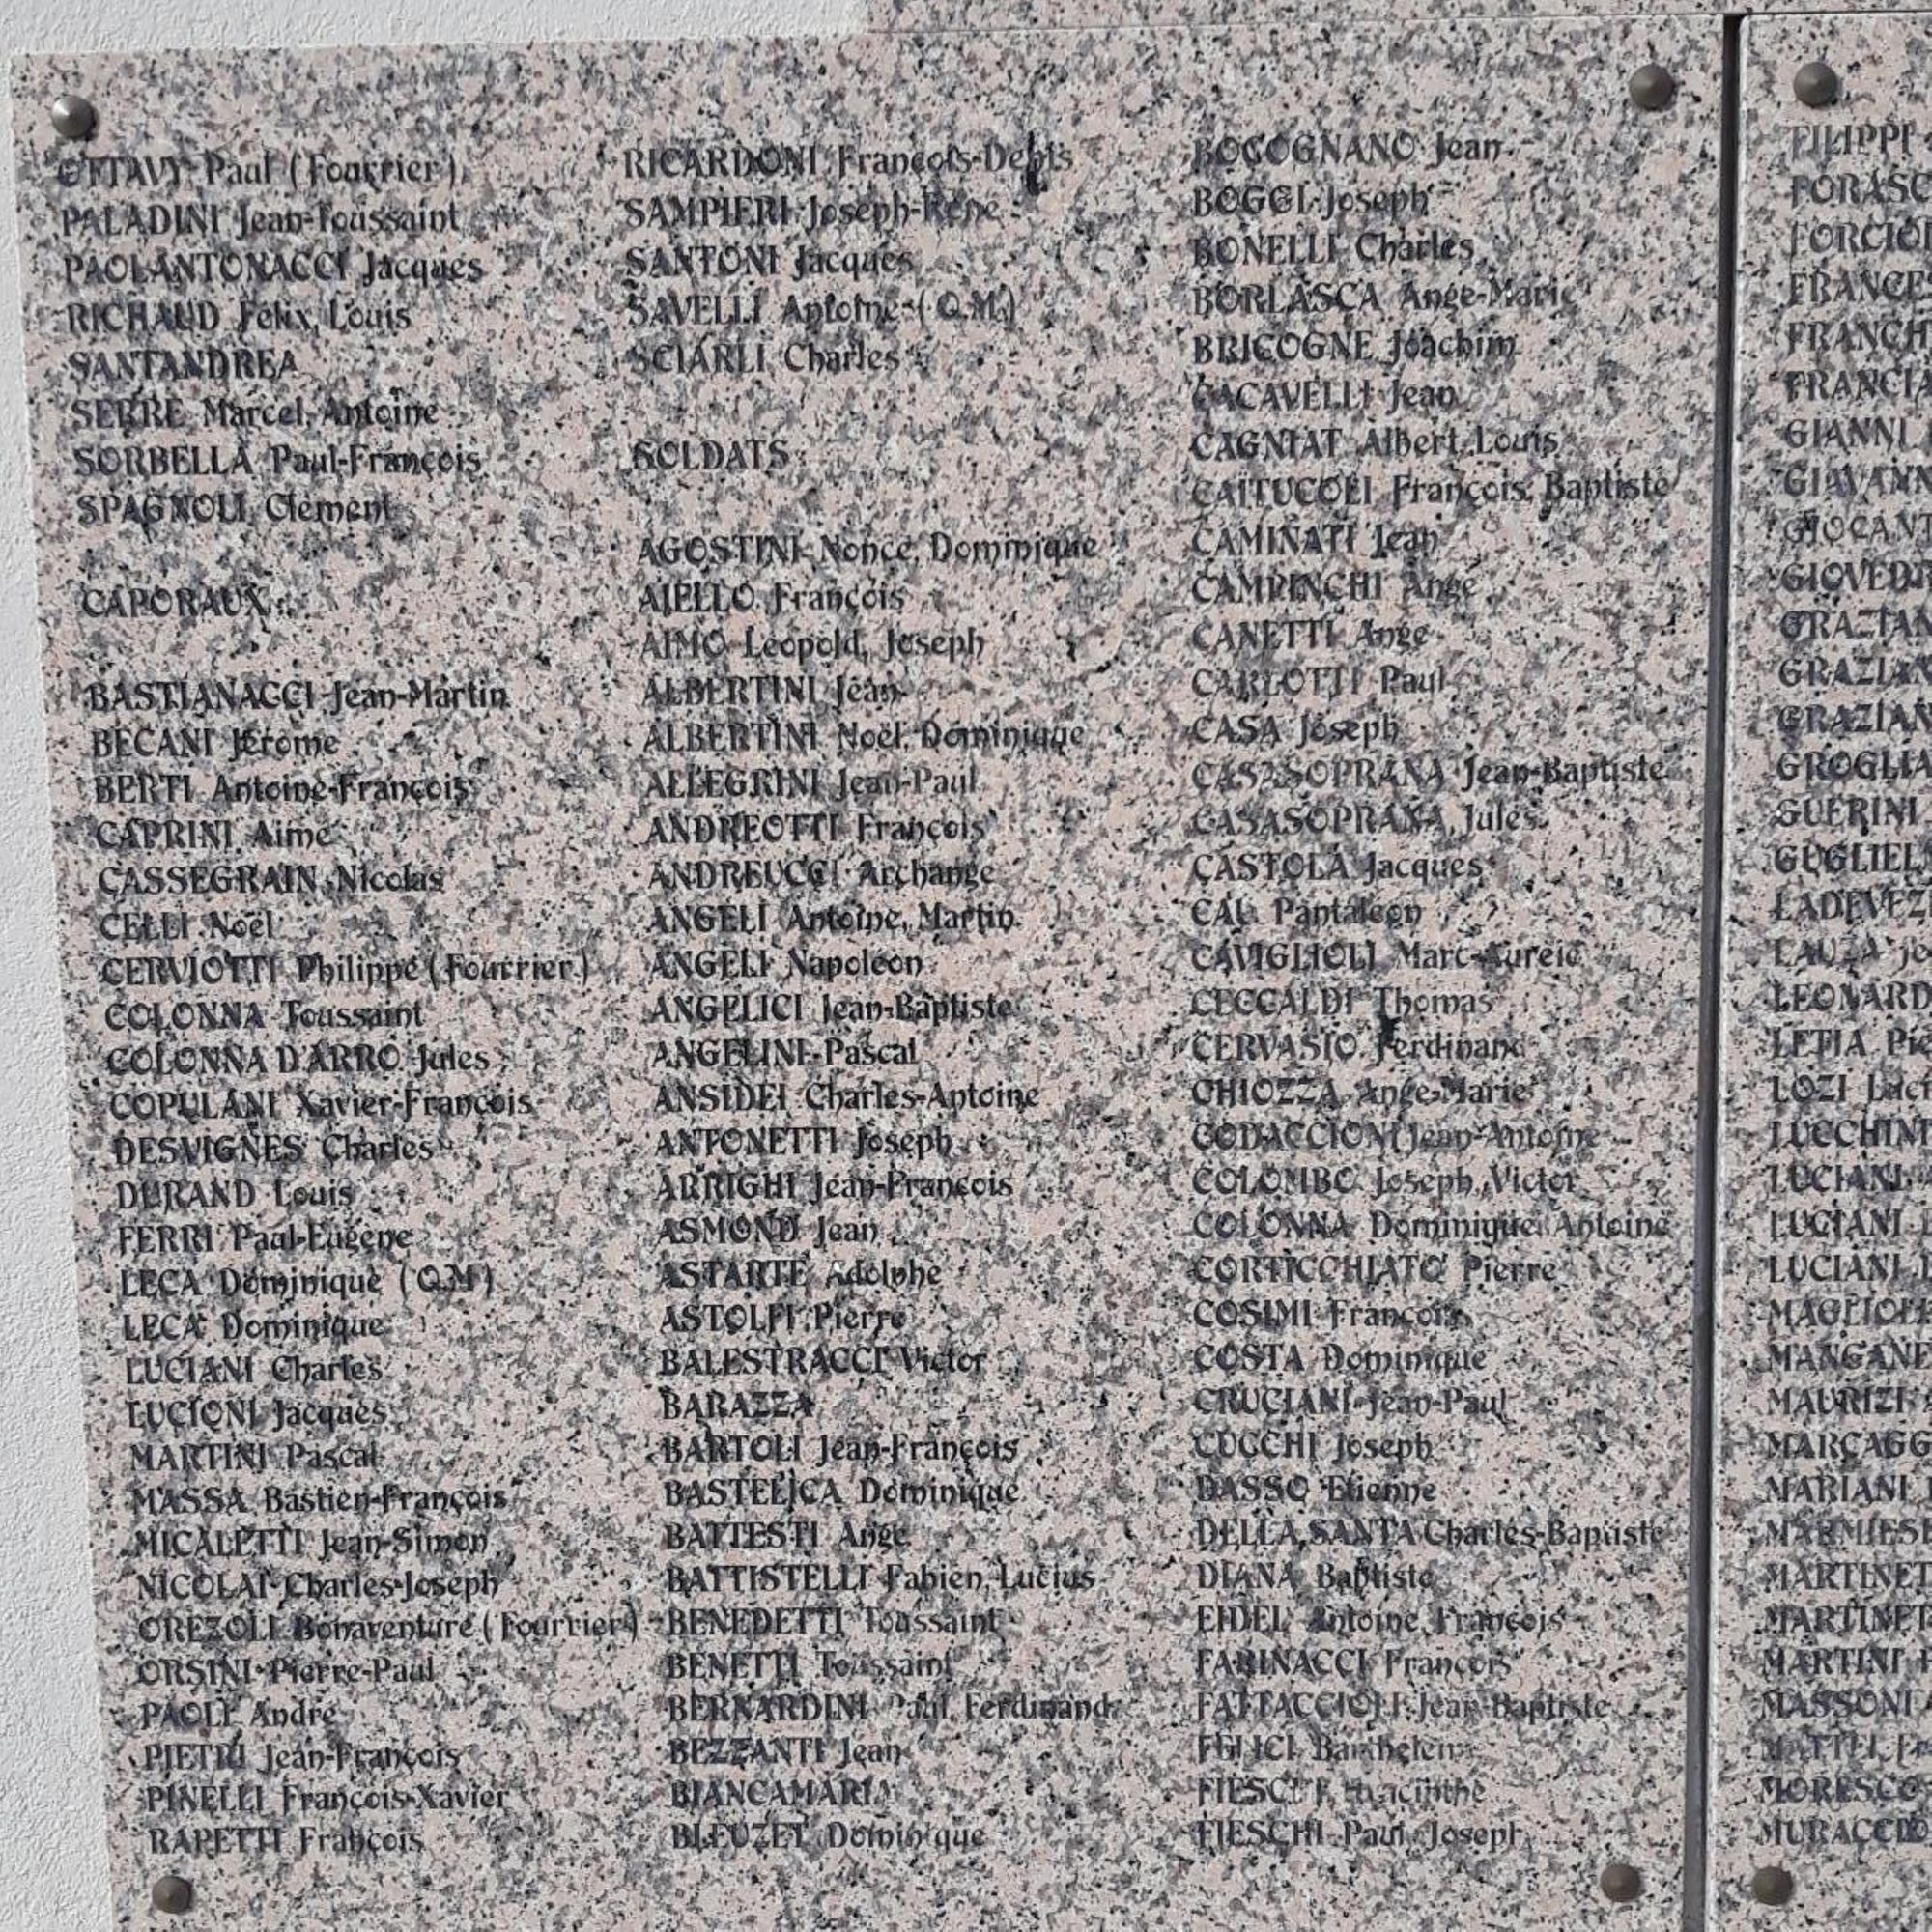 OTTAVY Paul (Fourrier)
PALADINI Jean-Toussaint
PAOLANTONACCI Jacques
RICHAUD Félix, Louis
SANTANDREA
SERRE Marcel, Antoine
SORBELLA Paul-François
SPAGNOLI Clément
CAPORAUX
BASTIANACCI Jean-Martin
BECANI Jérôme
BERTI Antoine-François
CAPRINI Aimé
CASSEGRAIN Nicolas
CELLI Noël
CERVIOTTI Philippe (Fourrier)
COLONNA Toussaint
COLONNA D'ARRO Jules
COPULANI Xavier-François
DESVIGNES Charles
DURAND Louis
FERRI Paul-Eugène
LECA Dominique (Q.M)
LECA Dominique
LUCIANI Charles
LUCIONI Jacques
MARTINI Pascal
MASSA Bastien-François
MICALETTI Jean-Simon
NICOLAI Charles-Joseph
OREZOLI Bonaventure (Fourrier)
ORSINI Pierre-Paul
PAOLI André
PIETRI Jean-François
PINELLI François-Xavier
RAPETTI François
RICARDONI François-Denis
SAMPIERI Joseph-René
SANTONI Jacques
SAVELLI Antoine (Q.M.)
SCIARLI Charles
SOLDATS
AGOSTINI Nonce, Dominique
AIELLO François
AIMO Léopold, Joseph
ALBERTINI Jean
ALBERTINI Noël, Dominique
ALLEGRINI Jean-Paul
ANDREOTTI François
ANDREUCCI Archange
ANGELI Antoine, Martin
ANGELI Napoléon
ANGELICI Jean-Baptiste
ANGELINI Pascal
ANSIDEI Charles-Antoine
ANTONETTI Joseph
ARRIGHI Jean-François
ASMOND Jean
ASTARTE Adolphe
ASTOLFI Pierre
BALESTRACCI Victor
BARAZZA
BARTOLI Jean-François
BASTELICA Dominique
BATTESTI Ange
BATTISTELLI Fabien, Lucius
BENEDETTI Toussaint
BENETTI Toussaint
BERNARDINI Paul, Ferdinand
BEZZANTI Jean
BIANCAMARIA
BLEUZET Dominique
BOCOGNANO Jean
BOGGI Joseph
BONELLI Charles
BORLASCA Ange-Marie
BRICOGNE Joachim
CACAVELLI Jean
CAGNIAT Albert, Louis
CAITUCOLI François, Baptiste
CAMINATI Jean
CAMPINCHI Ange
CANETTI Ange
CARLOTTI Paul
CASA Joseph
CASASOPRANA Jean-Baptiste
CASASOPRANA Jules
CASTOLA Jacques
CAU Pantaléon
CAVIGLIOLI Marc-Aurèle
CECCALDI Thomas
CERVASIO Ferdinand
CHIOZZA Ange-Marie
CODACCIONI Jean-Antoine
COLOMBO Joseph, Victor
COLONNA Dominique Antoine
CORTICCHIATO Pierre
COSIMI François
COSTA Dominique
CRUCIANI Jean-Paul
CUCCHI Joseph
DASSO Etienne
DELLA SANTA Charles-Baptiste
DIANA Baptiste
EIDEL Antoine, François
FARINACCI François
FATTACCIOLI Jean-Baptiste
FELICI Barthélemy
FIESCHI Hyacinthe
FIESCHI Paul, Joseph
FILIPPI
GIANNI
GUERINI
LAUZA
LETIA
LOZI
LUCIANI
LUCIANI
LUCIANI
MAURIZI
MARIANI
MARTINI
MASSONI
MATTEI